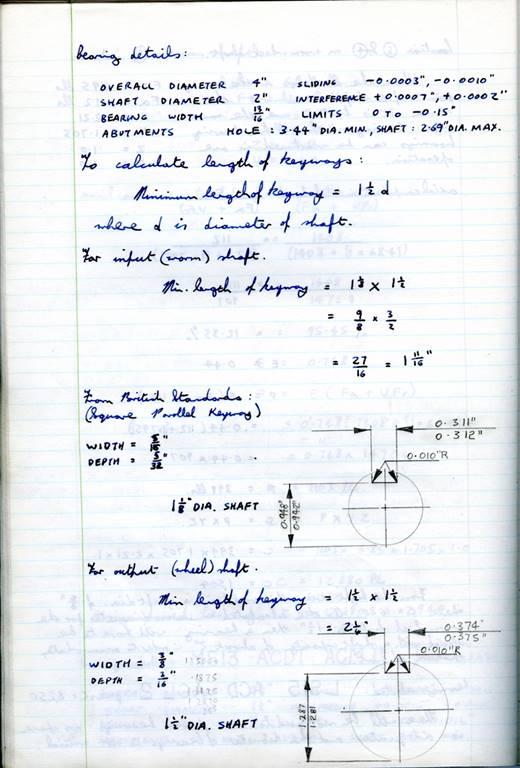 bearing details:
OVERALL DIAMETER 4" SLIDING -0.0003", -0.0010"
SHAFT DIAMETER 2" INTERFERENCE +0.0007", +0.0002"
BEARING WIDTH 13/16" LIMITS 0 TO -0.15"
ABUTMENTS HOLE : 3.44" DIA. MIN., SHAFT : 2.69" DIA. MAX.
To calculate length of keyways :
Minimum length of keyway = 1 1/2 d
where d is diameter of shaft.
For input (worm) shaft.
Min. length of keyway = 1 1/8 x 1 1/2
= 9/8 x 3/2
= 27/16 = 1 11/16"
From British Standards :
(Square Parallel Keyway)
0.311"
0.312"
WIDTH = 5/16"
DEPTH = 5/32"
0.010"R
1 1/8" DIA. SHAFT
0.948"
0.942"
For output (wheel) shaft.
Min length of keyway = 1 1/2 x 1 1/2
= 2 1/4"
0.374"
0.375"
WIDTH = 3/8"
DEPTH = 3/16"
0.010"R
1 1/2" DIA. SHAFT
1.287
1.281